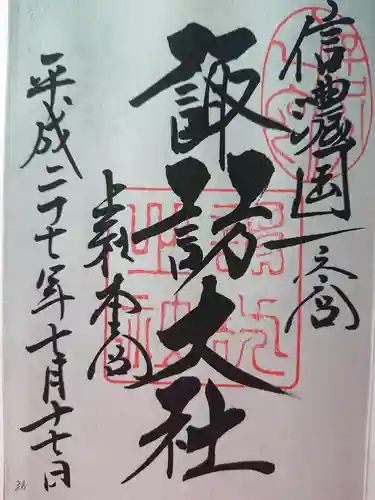 信濃國一之宮
諏訪大社
上社本宮
平成二十七年十月十七日